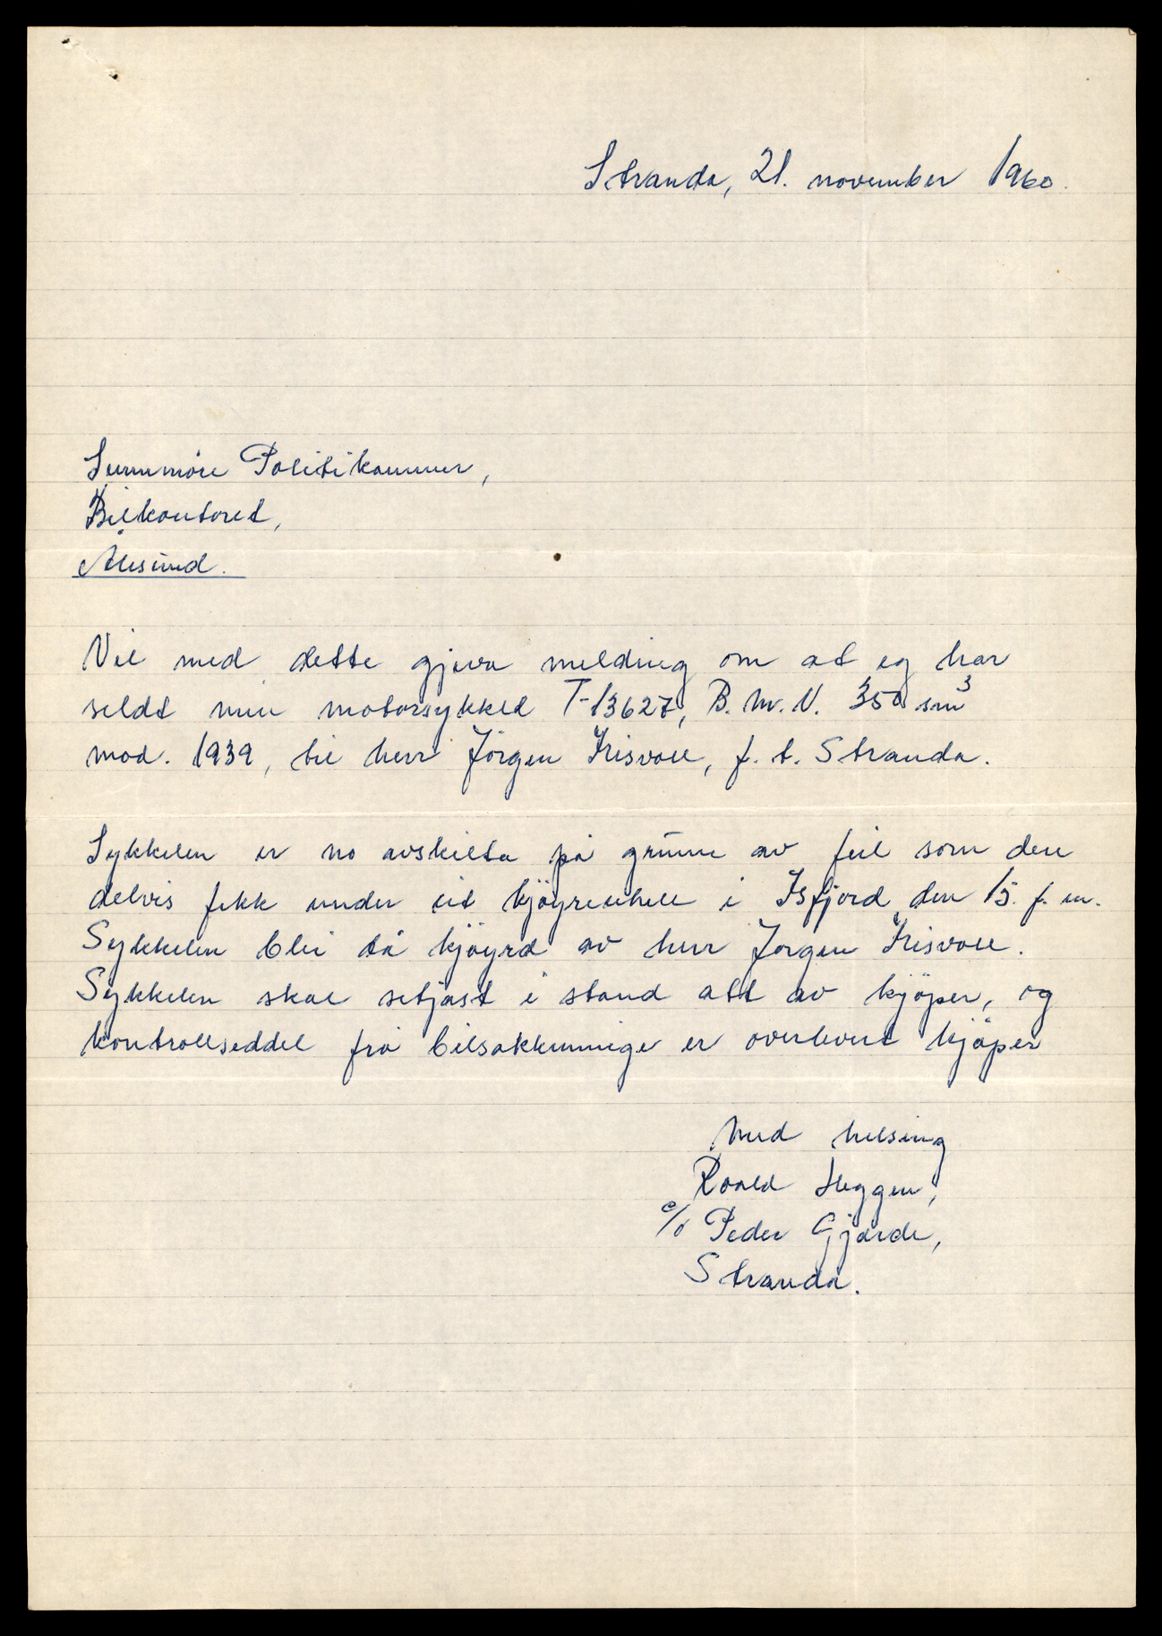 Stranda, 21. november 1960.
Sunnmöre Politikammer,
Bilkontoret,
Ålesund.
Vil med dette gjeva melding om at eg har
seldt min motorsykkel T-13627, B.M.V. 350 sm³
mod. 1939, til herr Jörgen Krisvoll, f.t. Stranda.
Sykkelen er no avskilta på grunn av feil som den
delvis fekk under eit kjöyreuhell i Isfjord den 15. f.m.
Sykkelen blei då kjöyrd av herr Jörgen Krisvoll.
Sykkelen skal setjast i stand att av kjöper, og
kontrollseddel frå bilsakkunnige er overlevert kjöper
Med helsing
Roald Heggen,
c/o Peder Gjærde,
Stranda.